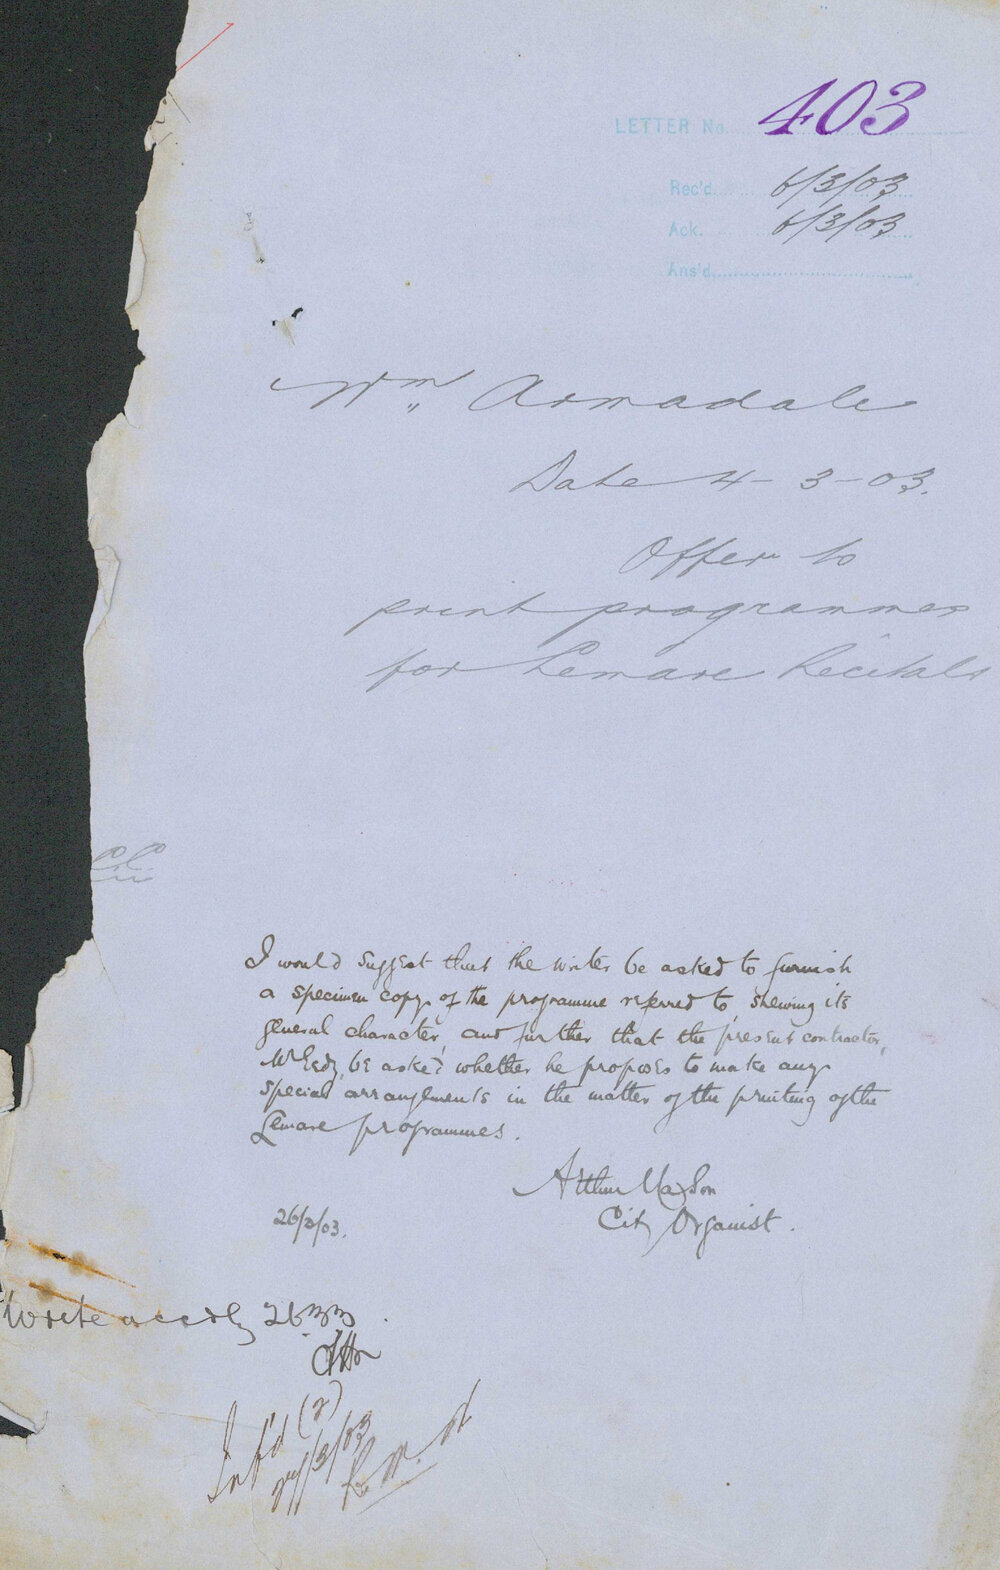 LETTER No. 403
Rec'd. 6/3/03
Ack. 6/3/03
Ans'd.
Wm. Armadale
Date 4-3-03.
Offer to
print programmes
for Lemare Recitals
C.C.
I would suggest that the writer be asked to furnish
a specimen copy of the programme referred to, shewing its
general character, and further that the present contractor,
Mr. be asked whether he proposes to make any
special arrangements in the matter of the printing of the
Lemare programmes.
Arthur Mason
City Organist.
26/3/03.
Write accdly 26 3 3
Inf'd (2)
27/3/03